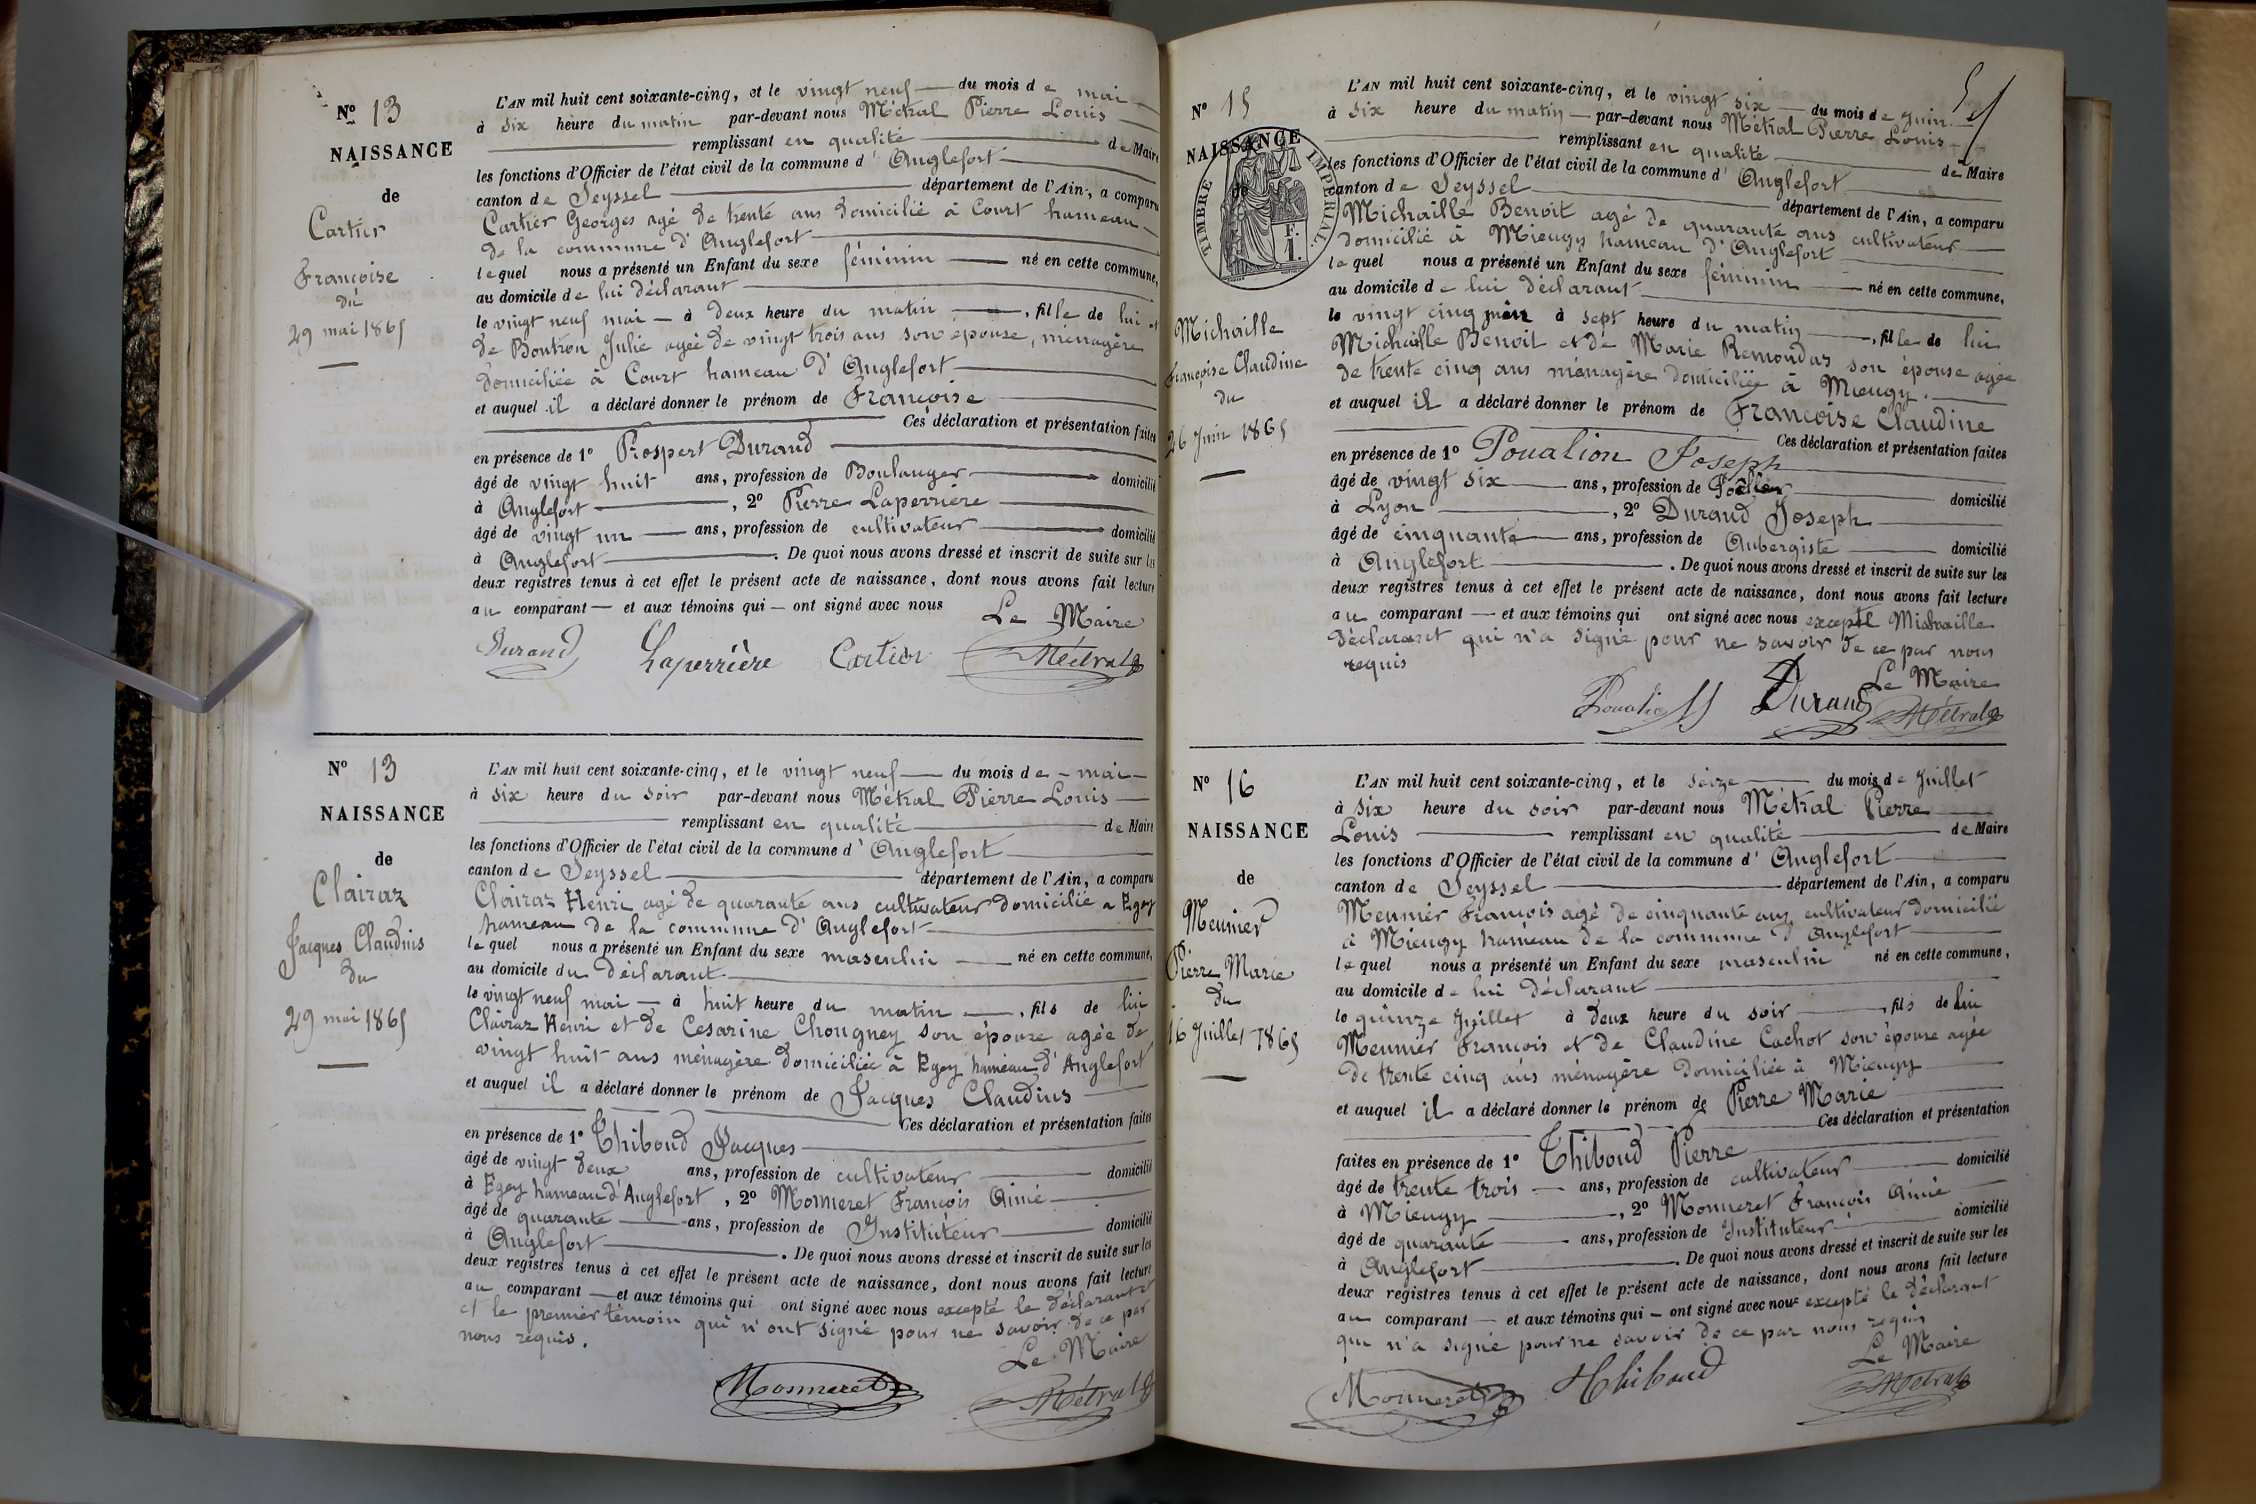 Nº 13
NAISSANCE
de
Cartier
Françoise
du
29 mai 1865
L'AN mil huit cent soixante-cinq, et le vingt neuf du mois de mai
à six heure du matin par-devant nous Métral Pierre Louis
remplissant en qualité de Maire
les fonctions d'Officier de l'état civil de la commune d'Anglefort
canton de Seyssel département de l'Ain, a comparu
Cartier Georges agé de trente ans domicilié à Court hameau
de la commune d'Anglefort
lequel nous a présenté un Enfant du sexe féminin né en cette commune,
au domicile de lui déclarant
le vingt neuf mai à deux heure du matin, fille de lui et
de Boutron Julie agée de vingt trois ans son épouse, ménagère
domiciliée à Court hameau d'Anglefort
et auquel il a déclaré donner le prénom de Françoise
Ces déclaration et présentation faites
en présence de 1º Prospert Durand
âgé de vingt huit ans, profession de Boulanger domicilié
à Anglefort, 2º Pierre Laperrière
âgé de vingt un ans, profession de cultivateur domicilié
à Anglefort. De quoi nous avons dressé et inscrit de suite sur les
deux registres tenus à cet effet le présent acte de naissance, dont nous avons fait lecture
au comparant et aux témoins qui ont signé avec nous
Le Maire
Durand Laperrière Cartier Métral
Nº 13
NAISSANCE
de
Clairaz
Jacques Claudius
du
29 mai 1865
L'AN mil huit cent soixante-cinq, et le vingt neuf du mois de mai
à six heure du soir par-devant nous Métral Pierre Louis
remplissant en qualité de Maire
les fonctions d'Officier de l'état civil de la commune d'Anglefort
canton de Seyssel département de l'Ain, a comparu
Clairaz Henri agé de quarante ans cultivateur domicilié a Egey
hameau de la commune d'Anglefort
lequel nous a présenté un Enfant du sexe masculin né en cette commune,
au domicile du déclarant
le vingt neuf mai à huit heure du matin, fils de lui
Clairaz Henri et de Cesarine Chougney son épouse agée de
vingt huit ans ménagère domiciliée à Egey hameau d'Anglefort
et auquel il a déclaré donner le prénom de Jacques Claudius
Ces déclaration et présentation faites
en présence de 1º Thiboud Jacques
âgé de vingt deux ans, profession de cultivateur domicilié
à Egey hameau d'Anglefort, 2º Monneret François Aimé
âgé de quarante ans, profession de Instituteur domicilié
à Anglefort. De quoi nous avons dressé et inscrit de suite sur les
deux registres tenus à cet effet le présent acte de naissance, dont nous avons fait lecture
au comparant et aux témoins qui ont signé avec nous excepté le déclarant
et le premier témoin qui n'ont signé pour ne savoir de ce par
nous requis.
Le Maire
Monneret Métral
Nº 15
NAISSANCE
de
TIMBRE IMPERIAL
F.
1.
Michaille
Françoise Claudine
du
26 Juin 1865
L'AN mil huit cent soixante-cinq, et le vingt six du mois de juin
à six heure du matin par-devant nous Métral Pierre Louis
remplissant en qualité de Maire
les fonctions d'Officier de l'état civil de la commune d'Anglefort
canton de Seyssel département de l'Ain, a comparu
Michaille Benoit agé de quarante ans cultivateur
domicilié à Mieugy hameau d'Anglefort
lequel nous a présenté un Enfant du sexe féminin né en cette commune,
au domicile de lui déclarant
le vingt cinq juin à sept heure du matin, fille de lui
Michaille Benoit et de Marie Remondaz son épouse agée
de trente cinq ans ménagère domiciliée à Mieugy.
et auquel il a déclaré donner le prénom de Françoise Claudine
Ces déclaration et présentation faites
en présence de 1º Poualion Joseph
âgé de vingt six ans, profession de domicilié
à Lyon, 2º Durand Joseph
âgé de cinquante ans, profession de Aubergiste domicilié
à Anglefort. De quoi nous avons dressé et inscrit de suite sur les
deux registres tenus à cet effet le présent acte de naissance, dont nous avons fait lecture
au comparant et aux témoins qui ont signé avec nous excepté Michaille
déclarant qui n'a signé pour ne savoir de ce par nous
requis
Le Maire
Durand Métral
Nº 16
NAISSANCE
de
Meunier
Pierre Marie
du
16 Juillet 1865
L'AN mil huit cent soixante-cinq, et le seize du mois de Juillet
à six heure du soir par-devant nous Métral Pierre
Louis remplissant en qualité de Maire
les fonctions d'Officier de l'état civil de la commune d'Anglefort
canton de Seyssel département de l'Ain, a comparu
Meunier François agé de cinquante ans cultivateur domicilié
à Mieugy hameau de la commune d'Anglefort
lequel nous a présenté un Enfant du sexe masculin né en cette commune,
au domicile de lui déclarant
le quinze Juillet à deux heure du soir, fils de lui
Meunier François et de Claudine Cachot son épouse agée
de trente cinq ans ménagère domiciliée à Mieugy
et auquel il a déclaré donner le prénom de Pierre Marie
Ces déclaration et présentation
faites en présence de 1º Thiboud Pierre
âgé de trente trois ans, profession de cultivateur domicilié
à Mieugy, 2º Monneret François Aimé
âgé de quarante ans, profession de Instituteur domicilié
à Anglefort. De quoi nous avons dressé et inscrit de suite sur les
deux registres tenus à cet effet le présent acte de naissance, dont nous avons fait lecture
au comparant et aux témoins qui ont signé avec nous excepté le déclarant
qui n'a signé pour ne savoir de ce par nous requis
Le Maire
Monneret Thiboud Métral